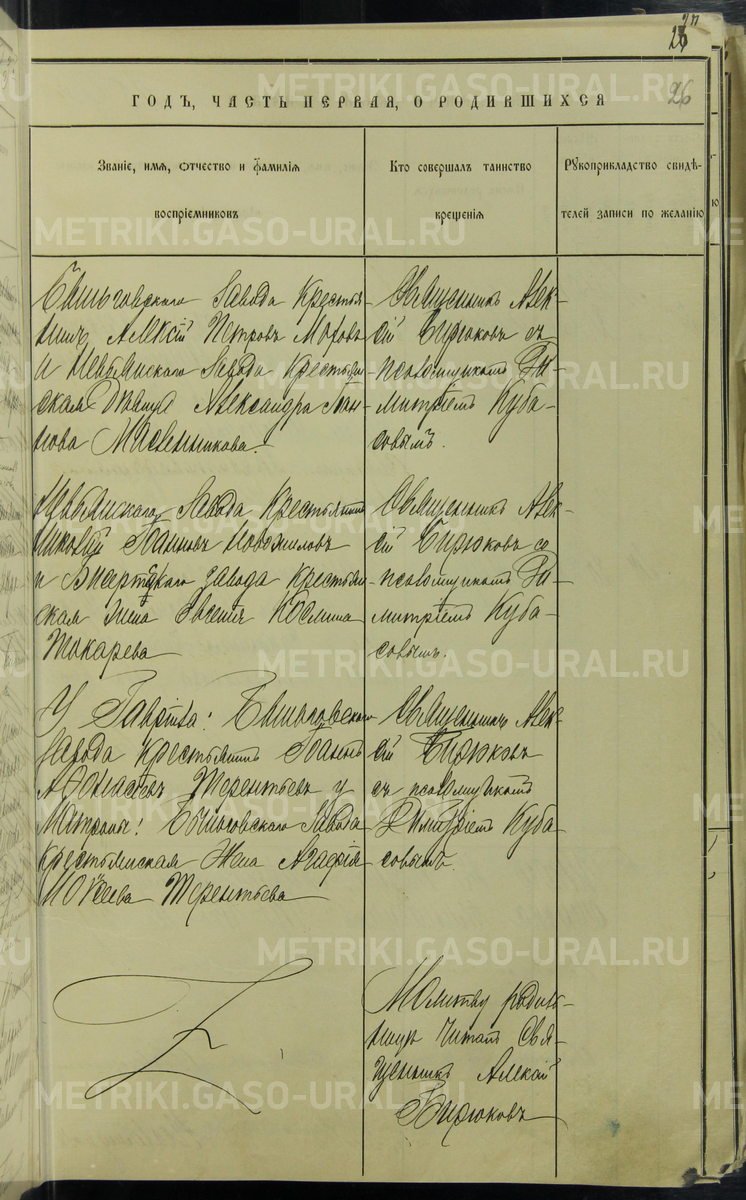 27
26
26
ГОДЪ, ЧАСТЬ ПЕРВАЯ, О РОДИВШИХСЯ
Званіе, имя, отчество и фамилія
воспріемниковъ
Кто совершалъ таинство
крещенія
Рукоприкладство свидѣ-
телей записи по желанію
Быньговскаго Завода Крестья-
нинъ Алексій Петровъ
и Невьянскаго Завода Крестьян-
ская Дѣвица Александра Іоан-
нова Масленникова.
Священникъ Алек-
сій Бирюковъ съ
псаломщикомъ Ди-
митріемъ Куба-
совымъ.
Невьянскаго Завода Крестьянинъ
Николай Іоанновъ Новожиловъ
и Висертскаго завода Крестьян-
ская Жена Евгенія Косьмина
Токарева
Священникъ Алек-
сій Бирюковъ со
псаломщикомъ Ди-
митріемъ Куба-
совымъ.
У Гавріила: Быньговскаго
завода Крестьянинъ Іоаннъ
Аѳонасіевъ Терентьевъ у
Матроны: Быньговскаго Завода
Крестьянская Жена Агафія
Моксеева Терентьева
Священникъ Алек-
сій Бирюковъ
съ псаломщикомъ
Димитріемъ Куба-
совымъ.
Молитву родиль-
ницѣ читалъ Свя-
щенникъ Алексій
Бирюковъ
METRIKI.GASO-URAL.RU